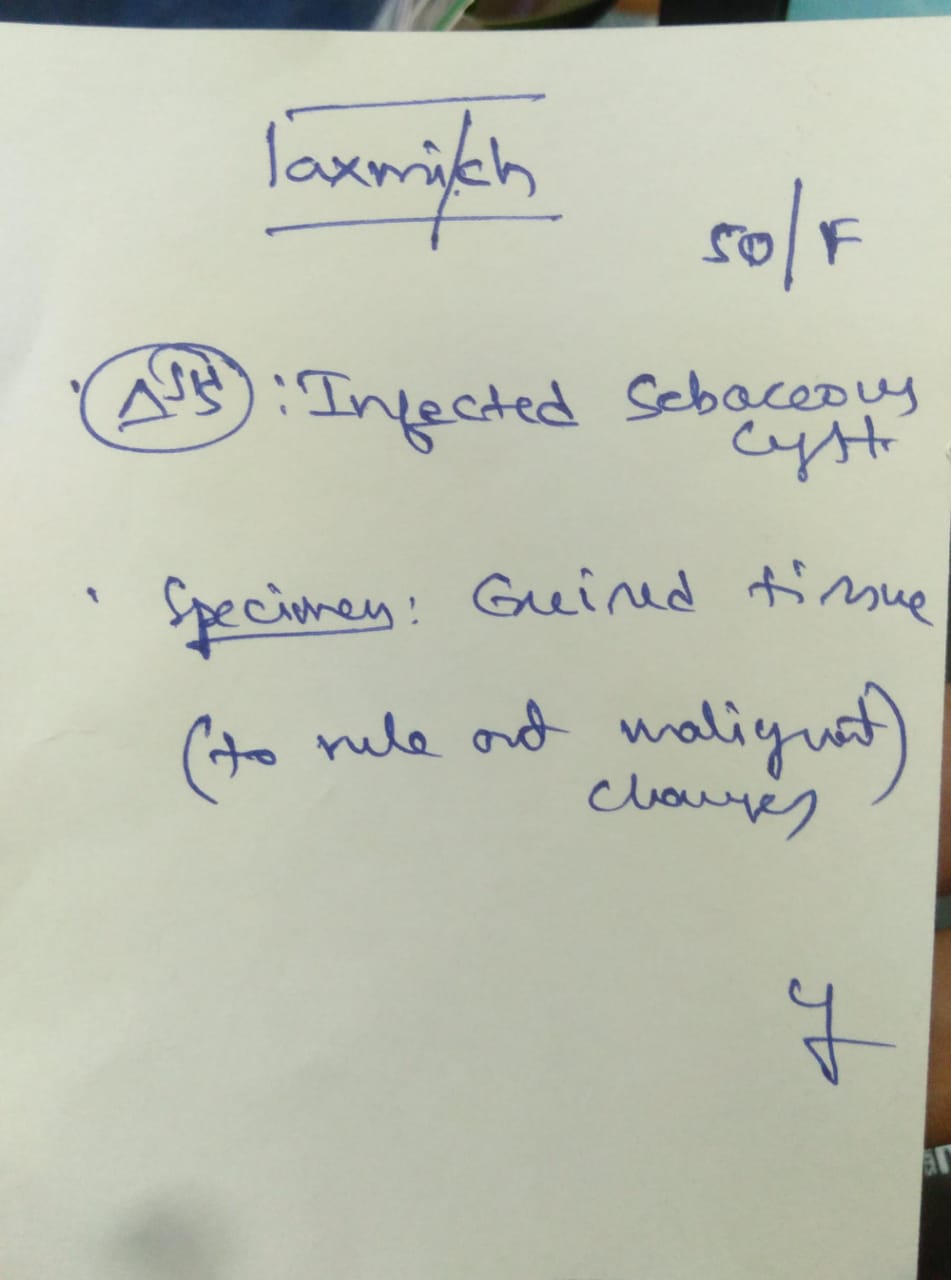 laxmi/ch
50/F
Infected Sebaceous
Cyst
Specimen: tissue
(to rule out malignant)
changes